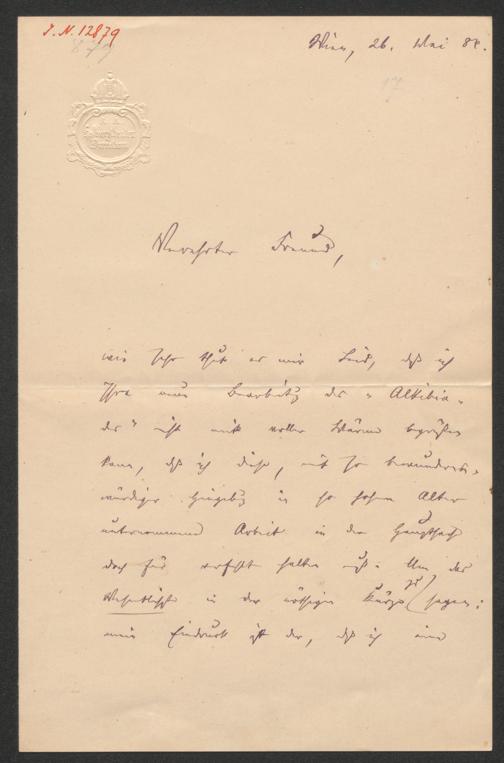 J. N. 12879
879
Wien, 26. Mai 88.
17
K. K.
Direction
Verehrter Freund,
wie sehr thut es mir Leid, daß ich
Ihre neue Bearbeitg des "Alkibia-
des" nicht mit voller Wärme begrüßen
kann, daß ich diese, mit so bewunderns-
würdiger Hingebg in so hohem Alter
unternommene Arbeit in der Hauptsache
doch für verfehlt halten muß. Um das
Wesentlichste in der nötigen Kürze zu sagen:
mein Eindruck ist der, daß ich eine